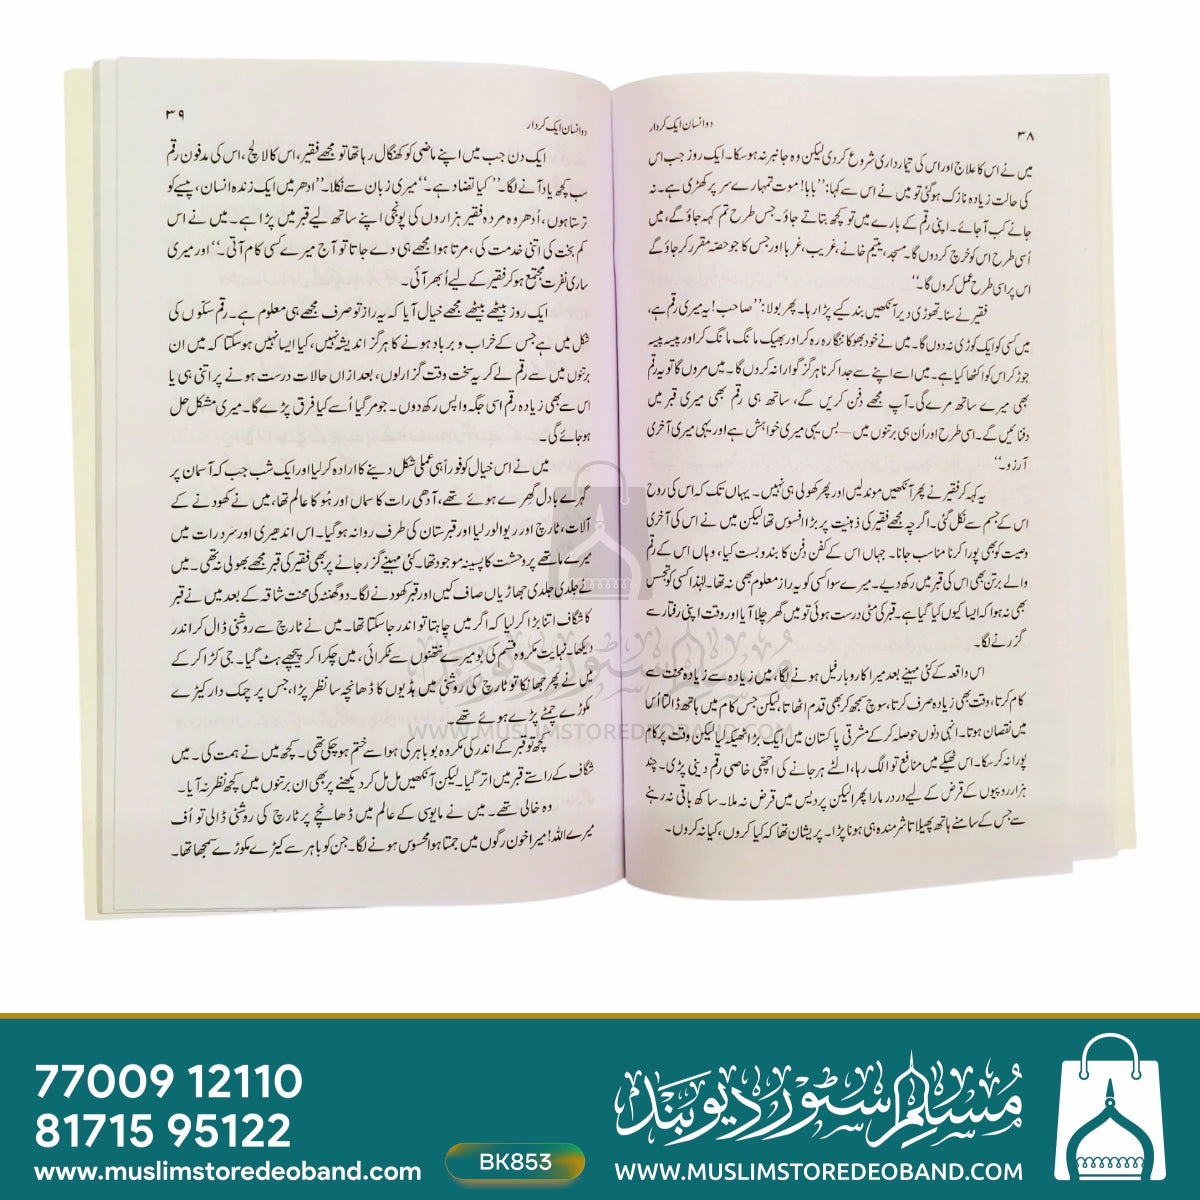 ۳۸
دو انسان ایک کردار
میں نے اس کا علاج اور اس کی تیمارداری شروع کردی لیکن وہ جانبر نہ ہوسکا۔ ایک روز جب اس
کی حالت زیادہ نازک ہوگئی تو میں نے اس سے کہا: ”بابا! موت تمہارے سر پر کھڑی ہے۔ نہ
جانے کب آجائے۔ اپنی رقم کے بارے میں تو کچھ بتاتے جاؤ۔ جس طرح تم کہہ جاؤگے، میں
اُسی طرح اس کو خرچ کردوں گا۔ مسجد، یتیم خانے، غریب، غربا اور جس کا جو حصّہ مقرر کر جاؤگے
اس پر اسی طرح عمل کروں گا۔“
فقیر نے سنا۔ تھوڑی دیر آنکھیں بند کیے پڑا رہا۔ پھر بولا: ”صاحب! یہ میری رقم ہے،
میں کسی کو ایک کوڑی نہ دوں گا۔ میں نے خود بھوکا ننگا رہ رہ کر اور بھیک مانگ مانگ کر اور پیسہ پیسہ
جوڑ کر اس کو اکٹھا کیا ہے۔ میں اسے اپنے سے جدا کرنا ہرگز گوارا نہ کروں گا۔ میں مروں گا تو یہ رقم
بھی میرے ساتھ مرے گی۔ آپ مجھے دفن کریں گے، ساتھ ہی رقم بھی میری قبر میں
دفنائیں گے۔ اسی طرح اور اُن ہی برتنوں میں — بس یہی میری خواہش ہے اور یہی میری آخری
آرزو۔“
یہ کہہ کر فقیر نے پھر آنکھیں موند لیں اور پھر کھولی ہی نہیں۔ یہاں تک کہ اس کی روح
اس کے جسم سے نکل گئی۔ اگرچہ مجھے فقیر کی ذہنیت پر بڑا افسوس تھا لیکن میں نے اس کی آخری
وصیت کو بھی پورا کرنا مناسب جانا۔ جہاں اس کے کفن دفن کا بندوبست کیا، وہاں اس کے رقم
والے برتن بھی اس کی قبر میں رکھ دیے۔ میرے سوا کسی کو یہ راز معلوم بھی نہ تھا۔ لہٰذا کسی کو تجسس
بھی نہ ہوا کہ ایسا کیوں کیا گیا ہے۔ قبر کی مٹی درست ہوئی تو میں گھر چلا آیا اور وقت اپنی رفتار سے
گزرنے لگا۔
اس واقعہ کے کئی مہینے بعد میرا کاروبار فیل ہونے لگا، میں زیادہ سے زیادہ محنت سے
کام کرتا، وقت بھی زیادہ صرف کرتا، سوچ سمجھ کر بھی قدم اٹھاتا، لیکن جس کام میں ہاتھ ڈالتا اُس
میں نقصان ہوتا۔ انہی دنوں حوصلہ کرکے مشرقی پاکستان میں ایک بڑا ٹھیکہ لیا لیکن وقت پر کام
پورا نہ کرسکا۔ اس ٹھیکے میں منافع تو الگ رہا، الٹے ہرجانے کی اچھی خاصی رقم دینی پڑی۔ چند
ہزار روپیوں کے قرض کے لیے در در مارا پھرا لیکن پردیس میں قرض نہ ملا۔ ساکھ باقی نہ رہنے
سے جس کے سامنے ہاتھ پھیلاتا شرمندہ ہی ہونا پڑا۔ پریشان تھا کہ کیا کروں، کیا نہ کروں۔
۳۹
دو انسان ایک کردار
ایک دن جب میں اپنے ماضی کو کھنگال رہا تھا تو مجھے فقیر، اس کا لالچ، اس کی مدفون رقم
سب کچھ یاد آنے لگا۔ ”کیا تضاد ہے۔“ میری زبان سے نکلا۔ ”ادھر میں ایک زندہ انسان، پیسے کو
ترستا ہوں، اُدھر وہ مردہ فقیر ہزاروں کی پونجی اپنے ساتھ لیے قبر میں پڑا ہے۔ میں نے اس
کم بخت کی اتنی خدمت کی، مرتا ہوا مجھے ہی دے جاتا تو آج میرے کسی کام آتی۔“ اور میری
ساری نفرت مجتمع ہوکر فقیر کے لیے اُبھر آئی۔
ایک روز بیٹھے بیٹھے مجھے خیال آیا کہ یہ راز تو صرف مجھے ہی معلوم ہے۔ رقم سکّوں کی
شکل میں ہے جس کے خراب و برباد ہونے کا ہرگز اندیشہ نہیں، کیا ایسا نہیں ہوسکتا کہ میں ان
برتنوں میں سے رقم لے کر یہ سخت وقت گزار لوں، بعد ازاں حالات درست ہونے پر اتنی ہی یا
اس سے بھی زیادہ رقم اسی جگہ واپس رکھ دوں۔ جو مر گیا اُسے کیا فرق پڑے گا۔ میری مشکل حل
ہوجائے گی۔
میں نے اس خیال کو فوراً ہی عملی شکل دینے کا ارادہ کرلیا اور ایک شب جب کہ آسمان پر
گہرے بادل گھرے ہوئے تھے، آدھی رات کا سماں اور ہُو کا عالم تھا، میں نے کھودنے کے
آلات، ٹارچ اور ریوالور لیا اور قبرستان کی طرف روانہ ہوگیا۔ اس اندھیری اور سرد رات میں
میرے ماتھے پر وحشت کا پسینہ موجود تھا۔ کئی مہینے گزر جانے پر بھی فقیر کی قبر مجھے بھولی نہ تھی۔ میں
نے جلدی جلدی جھاڑیاں صاف کیں اور قبر کھودنے لگا۔ دو گھنٹہ کی محنت شاقہ کے بعد میں نے قبر
کا شگاف اتنا بڑا کرلیا کہ اگر میں چاہتا تو اندر جاسکتا تھا۔ میں نے ٹارچ سے روشنی ڈال کر اندر
دیکھا۔ نہایت مکروہ قسم کی بو میرے نتھنوں سے ٹکرائی، میں چکرا کر پیچھے ہٹ گیا۔ جی کڑا کرکے
میں نے پھر جھانکا تو ٹارچ کی روشنی میں ہڈیوں کا ڈھانچہ سا نظر پڑا، جس پر چمک دار کیڑے
مکوڑے چمٹے پڑے ہوئے تھے۔
کچھ تو قبر کے اندر کی مکروہ بو باہر کی ہوا سے ختم ہوچکی تھی۔ کچھ میں نے ہمت کی۔ میں
شگاف کے راستے قبر میں اتر گیا۔ لیکن آنکھیں مل مل کر دیکھنے پر بھی ان برتنوں میں کچھ نظر نہ آیا۔
وہ خالی تھے۔ میں نے مایوسی کے عالم میں ڈھانچے پر ٹارچ کی روشنی ڈالی تو اُف
میرے اللہ! میرا خون رگوں میں جمتا ہوا محسوس ہونے لگا۔ جن کو باہر سے کیڑے مکوڑے سمجھا تھا۔
مسلم سٹور دیوبند
WWW.MUSLIMSTOREDEOBAND.COM
77009 12110
81715 95122
www.muslimstoredeoband.com
BK853
مسلم سٹور دیوبند
WWW.MUSLIMSTOREDEOBAND.COM